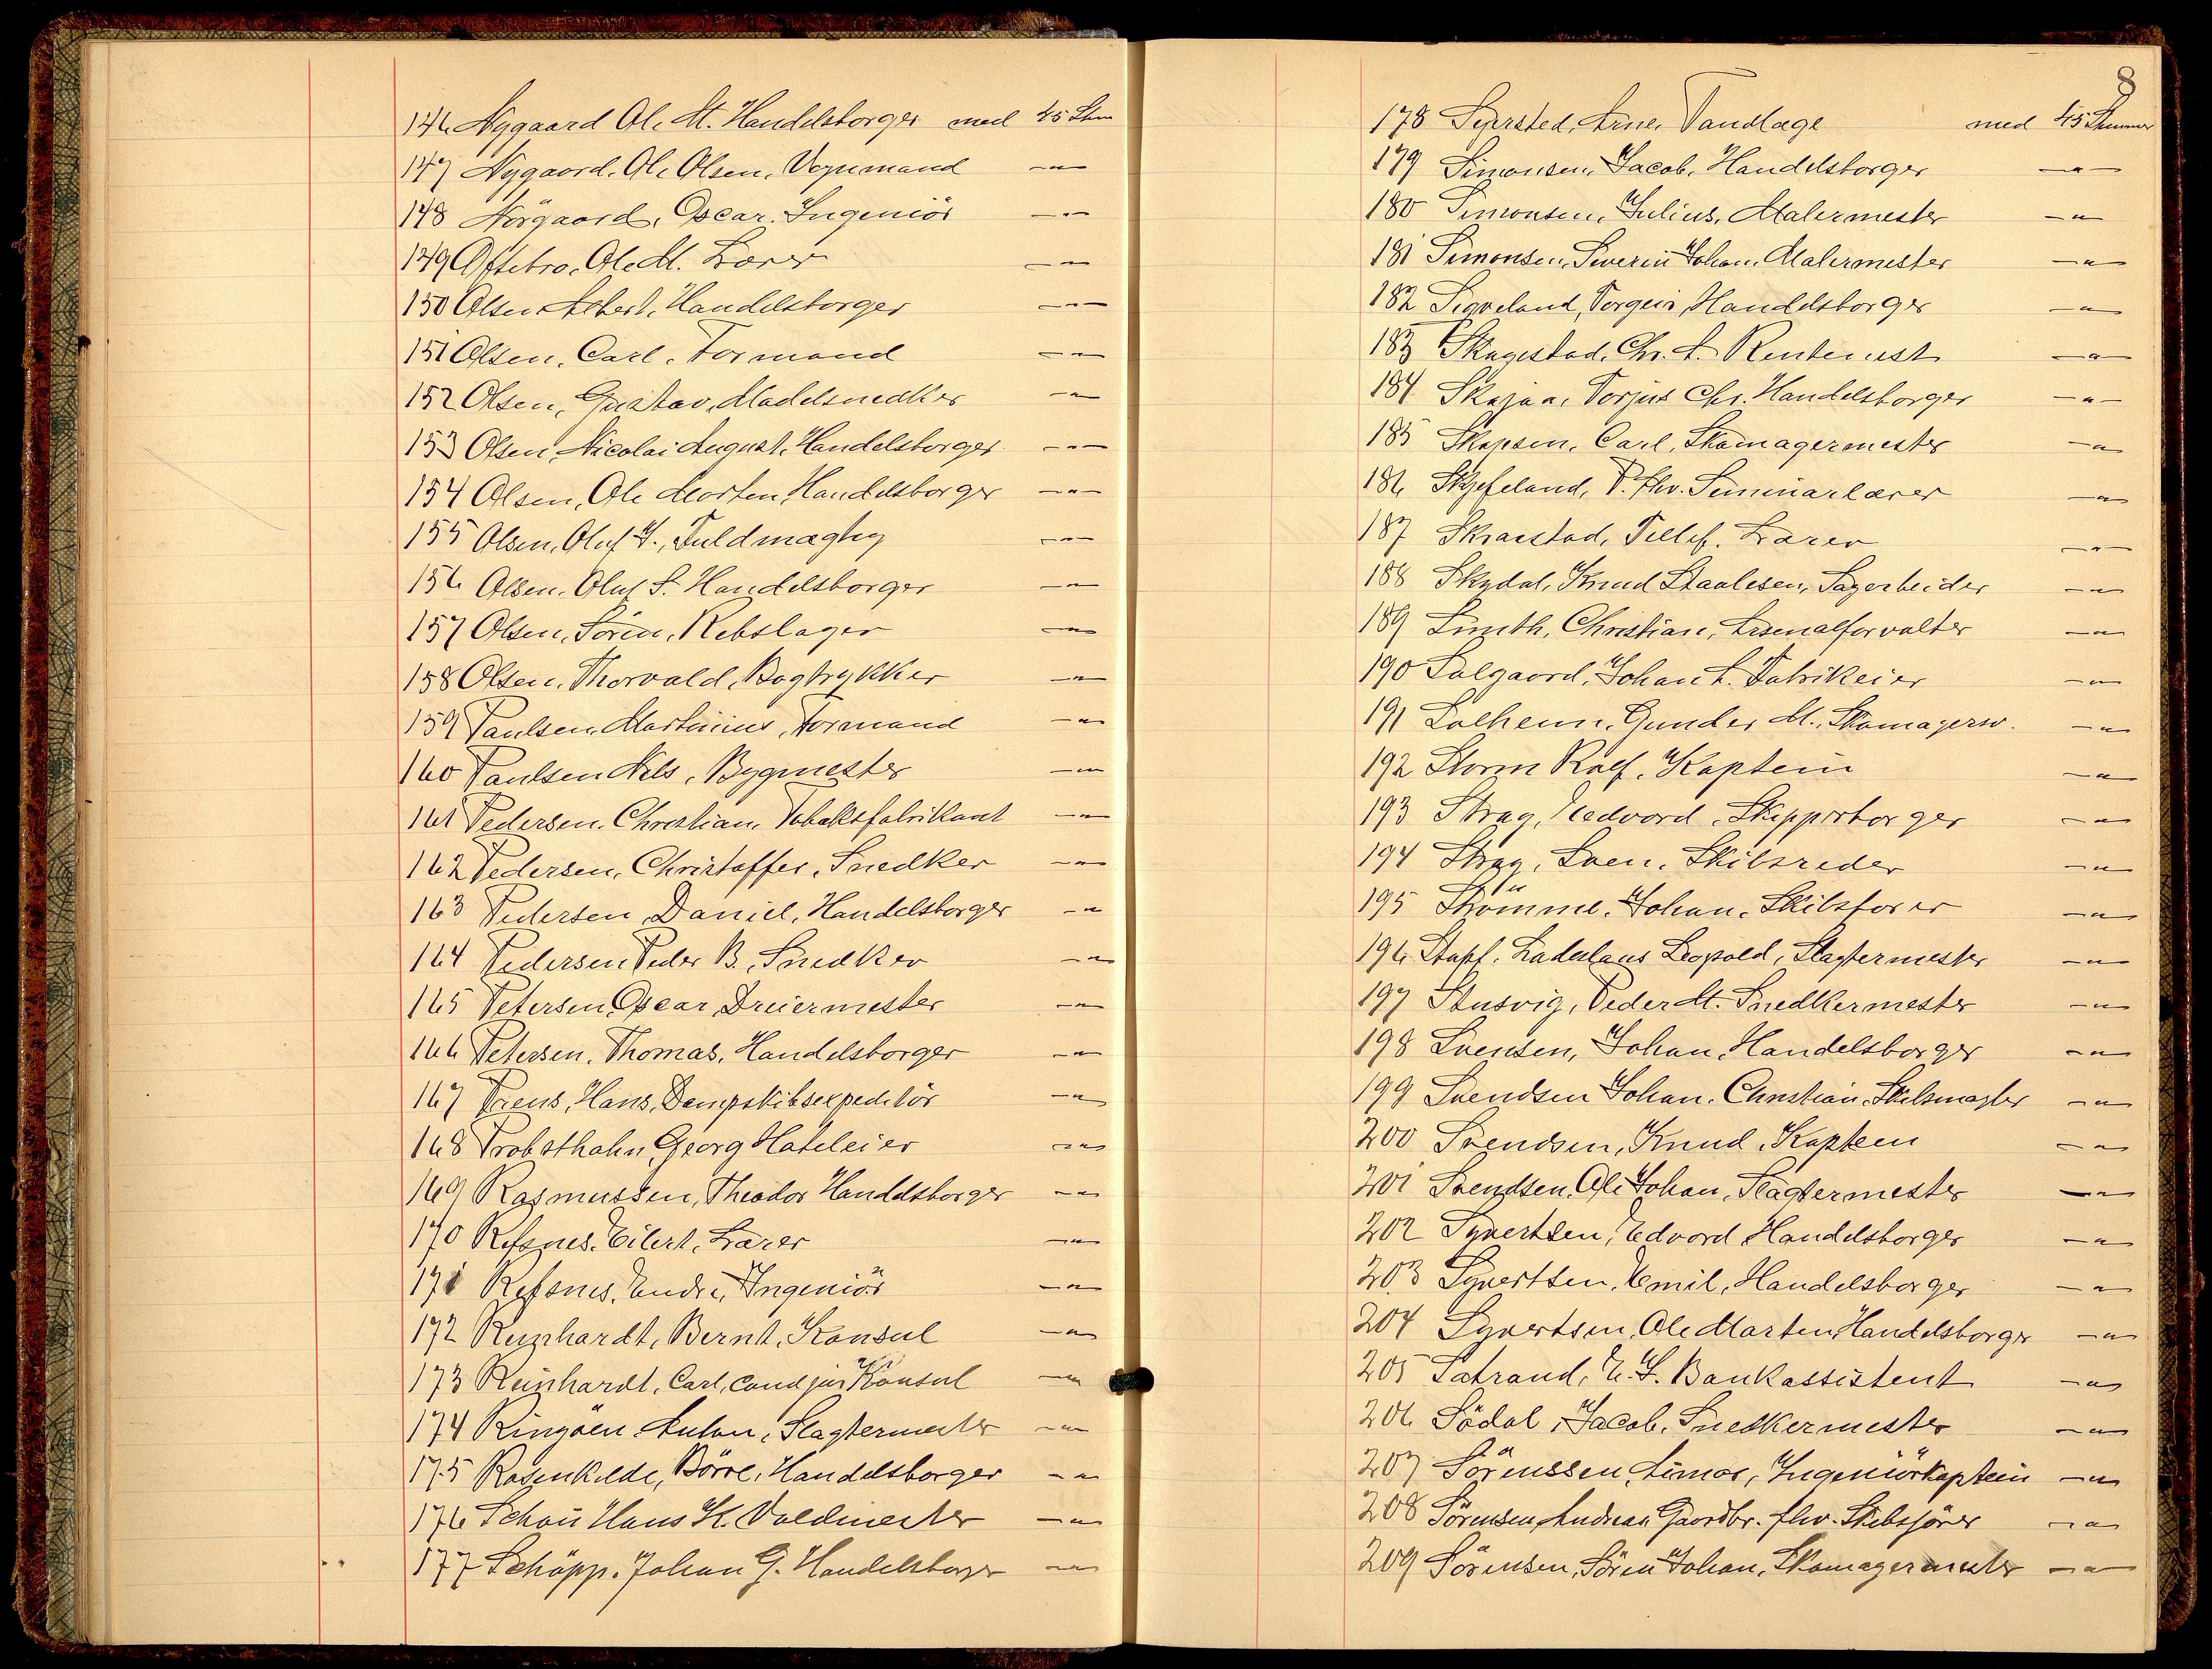 146 Nygaard Ole M. Handelsborger med 45 Stm
147 Nygaard, Ole Olsen, Vognmand —"—
148 Nörgaard, Oscar. Ingeniör —"—
149 Oftebro, Ole M. Lærer —"—
150 Olsen Albert, Handelsborger —"—
151 Olsen, Carl, Formand —"—
152 Olsen, Gustav, Modelsnedker —"—
153 Olsen, Nicolai August, Handelsborger —"—
154 Olsen, Ole Morten, Handelsborger —"—
155 Olsen, Oluf J., Fuldmægtig —"—
156 Olsen, Oluf S. Handelsborger —"—
157 Olsen, Sören, Rebslager —"—
158 Olsen, Thorvald, Bogtrykker —"—
159 Paulsen, Martinius, Formand —"—
160 Paulsen Nils, Bygmester —"—
161 Pedersen, Christian, Tobaksfabrikant —"—
162 Pedersen, Christoffer, Snedker —"—
163 Pedersen, Daniel, Handelsborger —"—
164 Pedersen Peder B., Snedker —"—
165 Petersen, Oscar, Dreiermester —"—
166 Petersen, Thomas, Handelsborger —"—
167 Preus, Hans, Dampskibsexpeditör —"—
168 Probsthahn, Georg Hoteleier —"—
169 Rasmussen, Theodor Handelsborger —"—
170 Refsnes, Eilert, Lærer —"—
171 Refsnes, Endre, Ingeniör —"—
172 Reinhardt, Bernt, Konsul —"—
173 Reinhardt, Carl, cand jur Konsul —"—
174 Ringöen Anton, Slagtermester —"—
175 Rosenkilde, Börre, Handelsborger —"—
176 Schou Hans K. Voldmester —"—
177 Schöpp. Johan G. Handelsborger —"—
8
178 Sejersted, Arne, Tandlæge med 45 Stemmer
179 Simonsen, Jacob, Handelsborger —"—
180 Simonsen, Julius, Malermester —"—
181 Simonsen, Severin Johan, Malermester —"—
182 Sigveland, Torgeir, Handelsborger —"—
183 Skagestad, Chr. A. Rentenist —"—
184 Skajaa, Torjus Chr. Handelsborger —"—
185 Carl, Skomagermester —"—
186 Skjefeland, P. fhv. Seminarlærer —"—
187 Skraastad, Tellef. Lærer —"—
188 Skydal, Knud Staalesen, Sagarbeider —"—
189 Smith, Christian, Arsenalforvalter —"—
190 Solgaard, Johan A. Fabrikeier —"—
191 Solheim, Gunder M., Skomagersv. —"—
192 Storm Rolf, Kaptein —"—
193 Stray, Edvard, Skipperborger —"—
194 Stray, Sven, Skibsreder —"—
195 Strömme, Johan, Skibsförer —"—
196 Stapf, Ladeslaus Leopold, Slagtermester —"—
197 Stusvig, Peder M. Snedkermester —"—
198 Svensen, Johan, Handelsborger —"—
199 Svendsen Johan, Christian, Skibsmægler —"—
200 Svendsen, Knud, Kaptein —"—
201 Svendsen, Ole Johan, Slagtermester —"—
202 Syvertsen, Edvard Handelsborger —"—
203 Syvertsen, Emil, Handelsborger —"—
204 Syvertsen, Ole Marten, Handelsborger —"—
205 Sætrand, E. S. Bankassistent —"—
206 Södal, Jacob, Snedkermester —"—
207 Sörenssen, Aimar, Ingeniörkaptein —"—
208 Sörensen, Andreas Gaardbr. fhv. Skibsförer —"—
209 Sörensen, Sören Johan, Skomagermester —"—